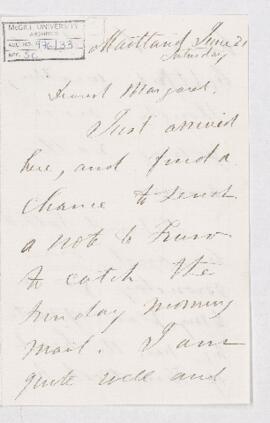 McGILL UNIVERSITY
ARCHIVES
ACC. NO. 976/33
REF.
Maitland June 21
Saturday
Dearest Margaret,
Just arrived
here, and find a
chance to send
a note to Truro
to catch the
Sunday morning
mail. I am
quite well and